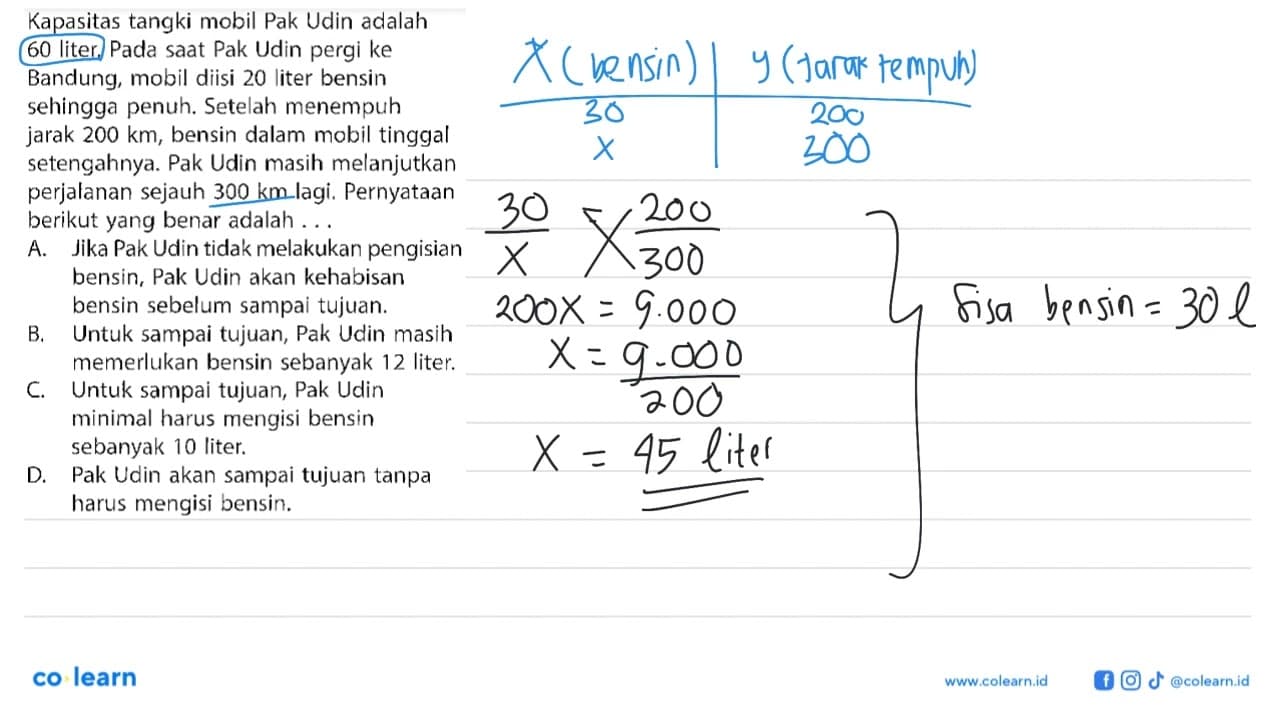 Kapasitas tangki mobil Pak Udin adalah
60 liter. Pada saat Pak Udin pergi ke
Bandung, mobil diisi 20 liter bensin
sehingga penuh. Setelah menempuh
jarak 200 km, bensin dalam mobil tinggal
setengahnya. Pak Udin masih melanjutkan
perjalanan sejauh 300 km lagi. Pernyataan
berikut yang benar adalah . . .
A. Jika Pak Udin tidak melakukan pengisian
bensin, Pak Udin akan kehabisan
bensin sebelum sampai tujuan.
B. Untuk sampai tujuan, Pak Udin masih
memerlukan bensin sebanyak 12 liter.
C. Untuk sampai tujuan, Pak Udin
minimal harus mengisi bensin
sebanyak 10 liter.
D. Pak Udin akan sampai tujuan tanpa
harus mengisi bensin.
X (bensin) y (Jarak tempuh)
30 200
x 300
30 200
x 300
200x = 9.000
x = 9.000
200
x = 45 liter
Sisa bensin = 30 l
co learn
www.colearn.id @colearn.id